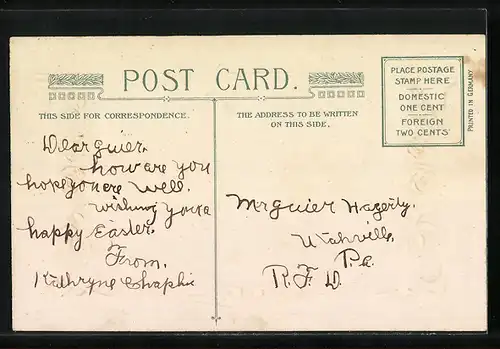 POST CARD.
THIS SIDE FOR CORRESPONDENCE.
THE ADDRESS TO BE WRITTEN
ON THIS SIDE.
PLACE POSTAGE
STAMP HERE
DOMESTIC
ONE CENT
FOREIGN
TWO CENTS
PRINTED IN GERMANY
Dear guier.
how are you
hope you are well.
wishing you a
happy Easter.
From.
Kathryne
Mr guier Hagerty.
Utahville,
Pa.
R. F. D.